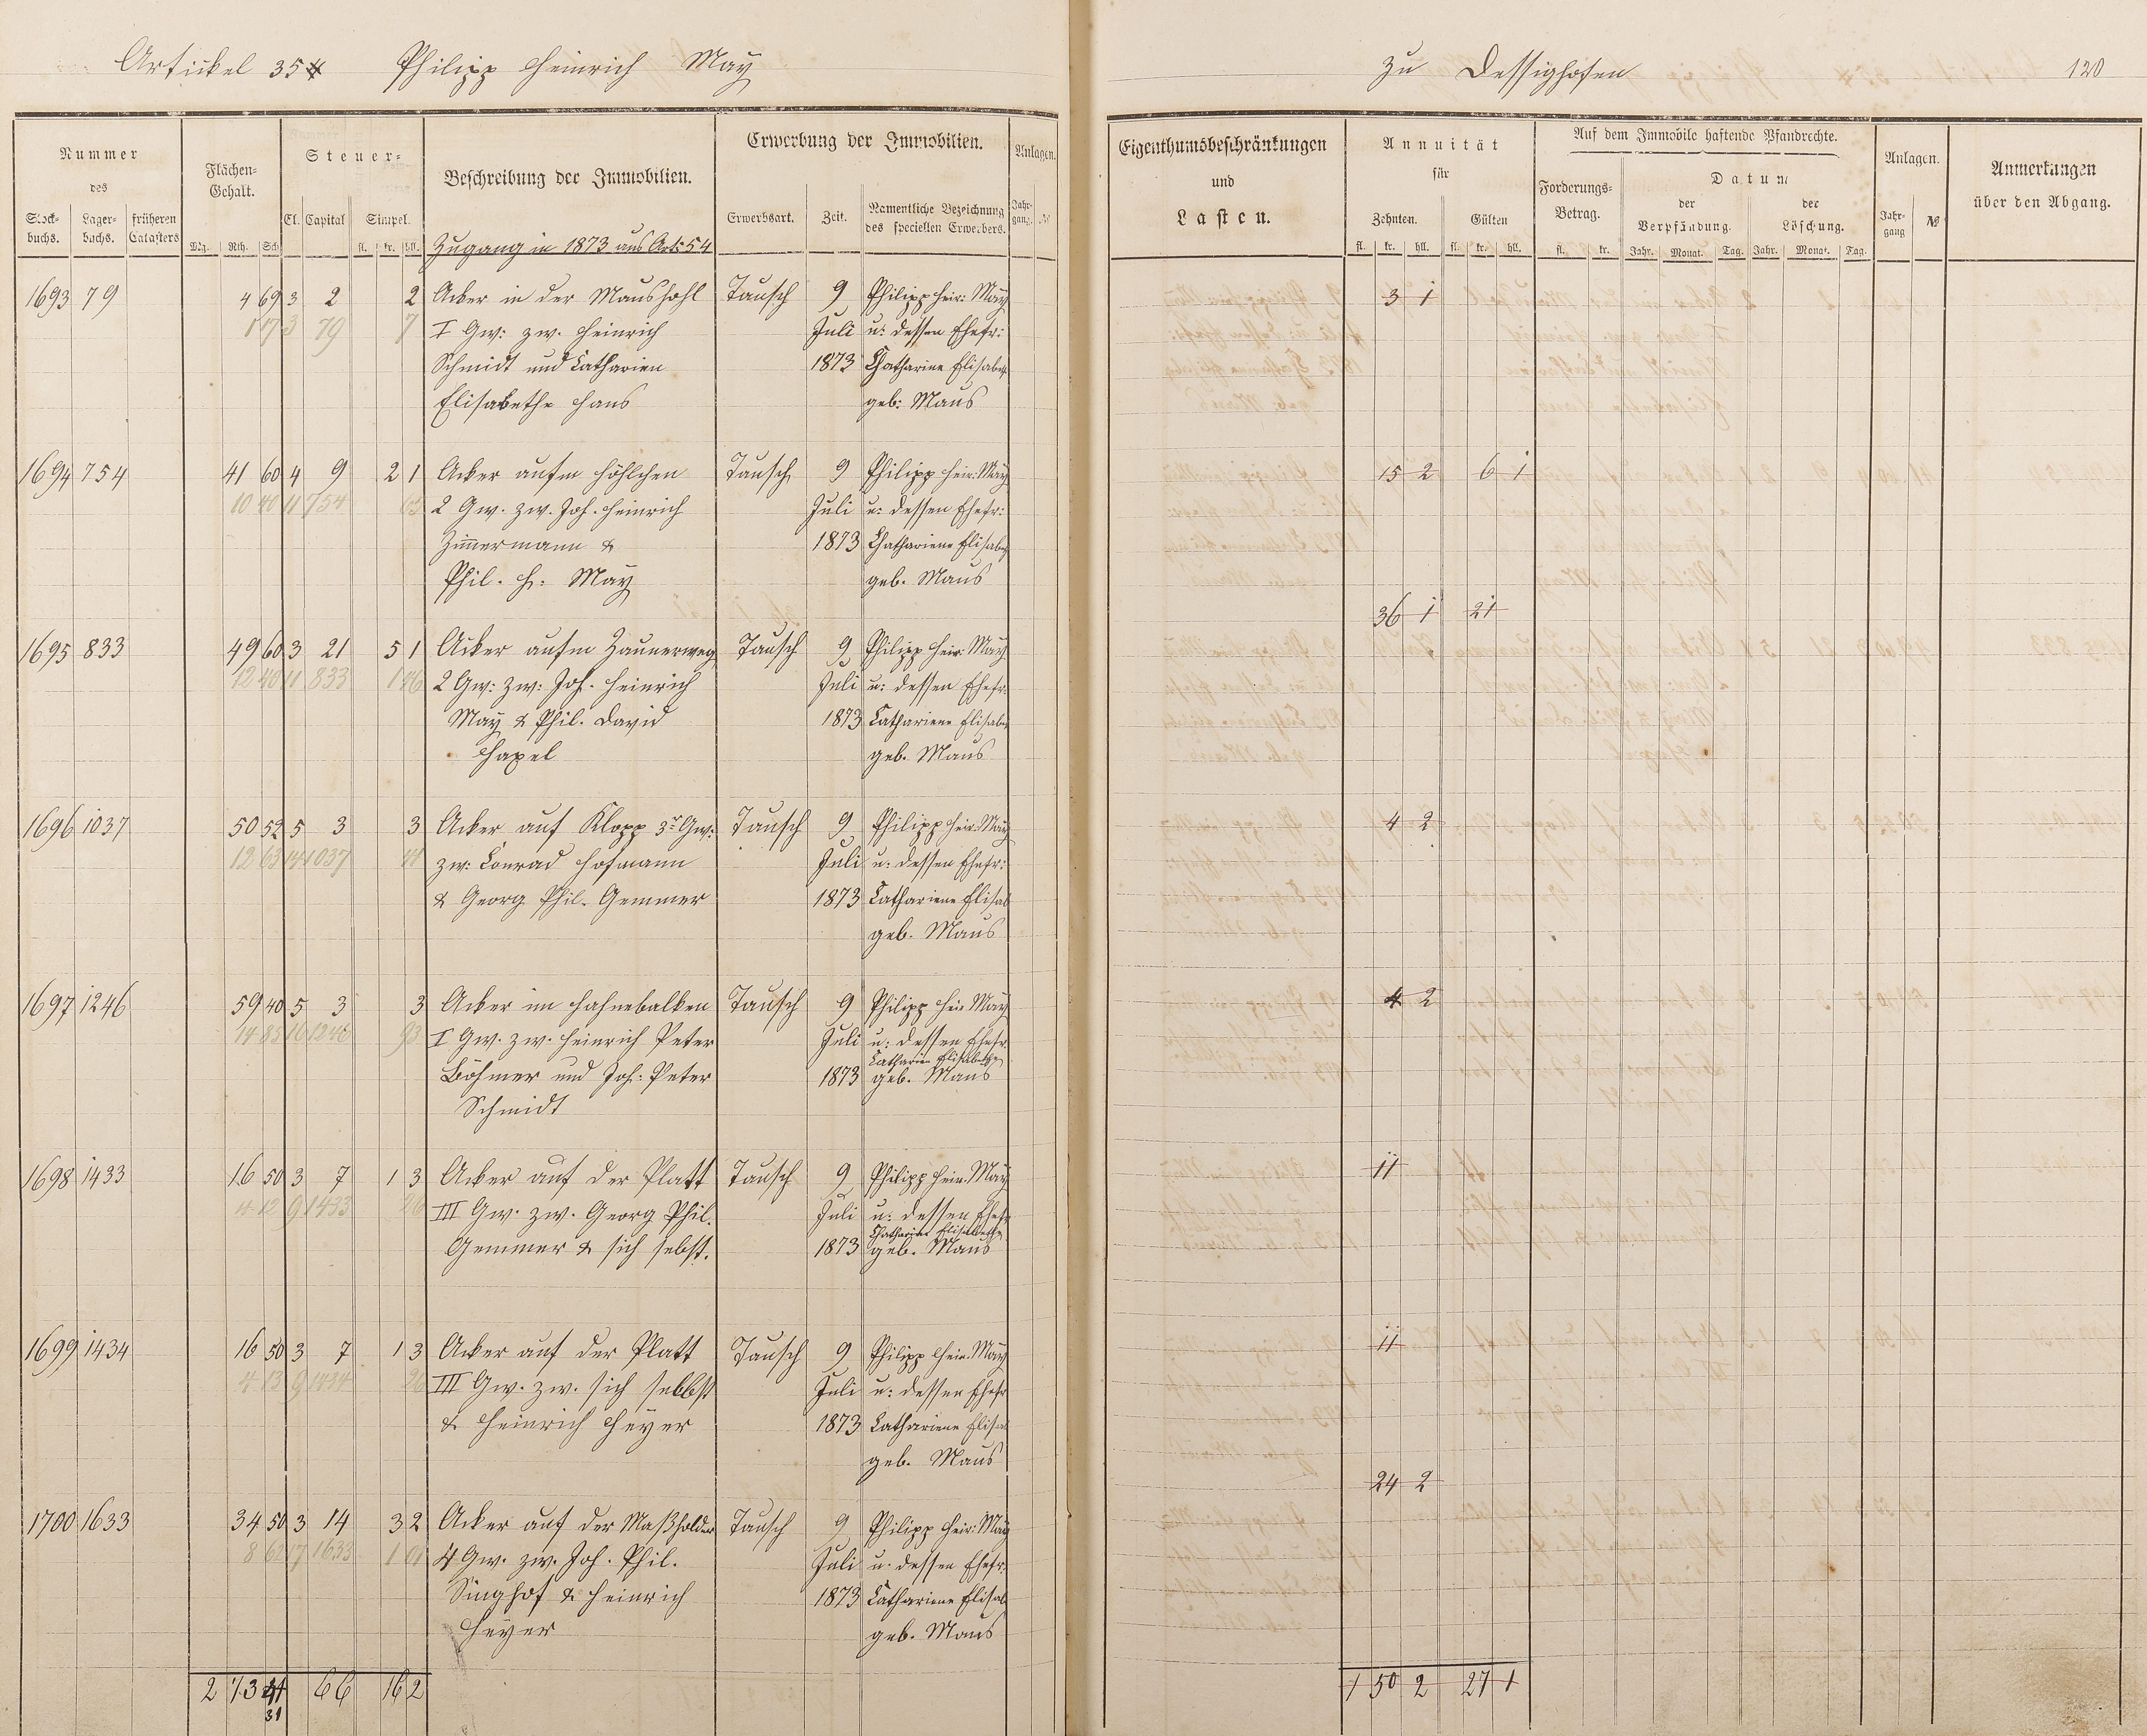 Artickel 354 Philipp Heinrich May
zu Dessighofen 120
Nummer des
Stock-buchs. Lager-buchs. früheren Catasters
Flächen-Gehalt.
Mg. Rth. Sch.
Steuer-
Cl. Capital Simpel.
fl. kr. hll.
Beschreibung der Immobilien.
Zugang in 1873 aus Art: 54
Erwerbung der Immobilien.
Erwerbsart. Zeit. Namentliche Bezeichnung des speciellen Erwerbers.
Anlagen.
Jahr-gang. №
Eigenthumsbeschränkungen
und
Lasten.
Annuität
für
Zehnten. Gülten
fl. kr. hll. fl. kr. hll.
Auf dem Immobile haftende Pfandrechte.
Forderungs-Betrag.
fl. kr.
Datum
der Verpfändung. der Löschung.
Jahr. Monat. Tag. Jahr. Monat. Tag.
Anlagen.
Jahr-gang №
Anmerkungen
über den Abgang.
1693 79 4 69 3 2 2 Acker in der Maushohl Tausch 9 Philipp Heir: May 3 1
1 17 3 79 7 I Gw: zw. Heinrich Juli u: dessen Ehefr:
Schmidt und Catharien 1873 Chatharine Elisabeth
Elisabethe Hans geb: Maus
1694 754 41 60 4 9 2 1 Acker aufm Höhlchen Tausch 9 Philipp Heir: May 15 2 6 1
10 40 11 754 63 2 Gw. zw. Joh. Heinrich Juli u: dessen Ehefr:
Zimmermann & 1873 Chathariene Elisabe
Phil. H: May geb. Maus
36 1 21
1695 833 49 60 3 21 5 1 Acker aufm Zaunerweg Tausch 9 Philipp Heir: May
12 40 11 833 1 46 2 Gw: zw: Joh. Heinrich Juli u: dessen Ehefr.
May & Phil. David 1873 Cathariene Elisabe
Hapel geb. Maus
1696 1037 50 52 5 3 3 Acker auf Klopp 3r Gw: Tausch 9 Philipp Heir: May 4 2
12 63 14 1037 44 zw: Conrad Hofmann Juli u: dessen Ehefr:
& Georg Phil. Gemmer 1873 Cathariene Elisab
geb. Maus
1697 1246 59 40 5 3 3 Acker im Hahnebalken Tausch 9 Philipp Hei: May 4 2
14 85 16 1246 93 I Gw. zw. Heinrich Peter Juli u: dessen Ehefr.
Catharien Elisabethe
Böhmer und Joh: Peter 1873 geb. Maus
Schmidt
1698 1433 16 50 3 7 1 3 Acker auf der Platt Tausch 9 Philipp Hein. May 11
4 12 9 1433 26 III Gw. zw. Georg Phil. Juli u: dessen Ehefr
Chatharine Elisabethe
Gemmer & sich sebst. 1873 geb. Maus
1699 1434 16 50 3 7 1 3 Acker auf der Platt Tausch 9 Philipp Hein. May 11
4 13 9 1434 26 III Gw. zw. sich selbst Juli u: dessen Ehefr
& Heinrich Heyer 1873 Cathariene Elisab
geb. Maus
24 2
1700 1633 34 50 3 14 3 2 Acker auf der Maßholder Tausch 9 Philipp Heir: May
8 62 17 1633 1 01 4 Gw. zw. Joh. Phil. Juli u. dessen Ehefr.
Singhof & Heinrich 1873 Cathariene Elisab
Heyer geb. Maus
2 73 41 66 16 2 1 50 2 27 1
31